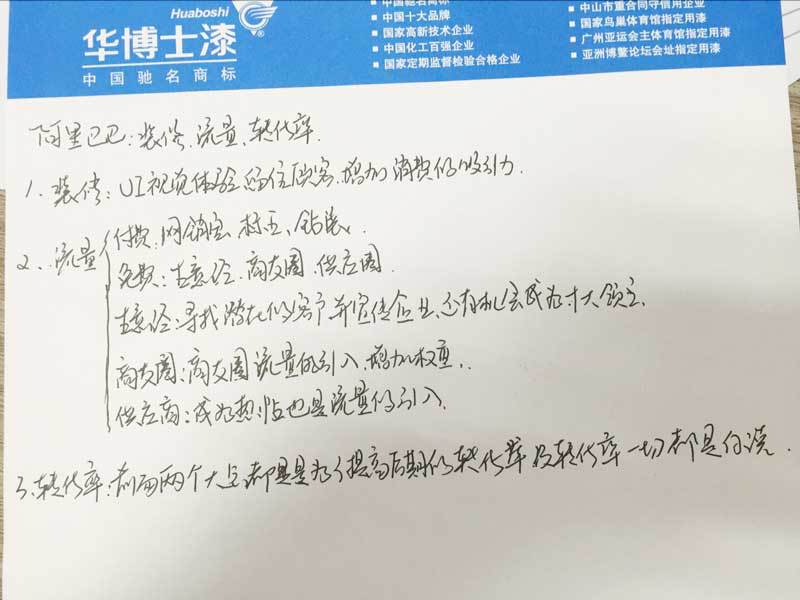 Huaboshi
华博士漆
中国驰名商标
中国驰名商标
中国十大品牌
国家高新技术企业
中国化工百强企业
国家定期监督检验合格企业
中山市重合同守信用企业
国家鸟巢体育馆指定用漆
广州亚运会主体育馆指定用漆
亚洲博鳌论坛会址指定用漆
阿里巴巴:装修、流量、转化率.
1、装修:UI视觉体验留住顾客,增加消费的吸引力.
2、流量
付费:网销宝、标王、钻展、
免费:生意经、商友圈、供应圈.
生意经:寻找潜在的客户并宣传企业,还有机会成为十大领主.
商友圈:商友圈流量的引入,增加权重.
供应商:成为热帖也是流量的引入.
3、转化率:前面两个大点都是是为了提高后期的转化率 没转化率一切都是白谈.